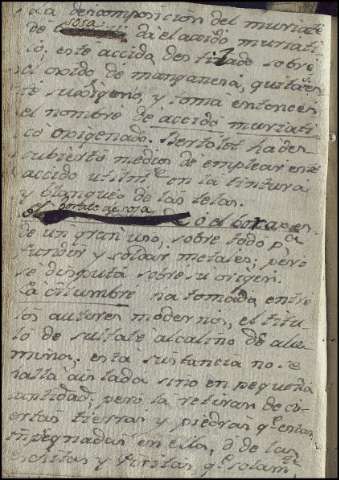 La descomposicion del muriate
de sosa da el accido muriati
co, este accido destilado sobre
el oxido de manganesa, quita
te su oxigeno, y toma entonces
el nombre de accido muriati
co oxigenado. Bertolot ha des
cubierto medios de emplear este
accido utilmte en la tintura
y blanqueo de las telas.
El borate de sosa ó el borax es
de un gran uso, sobre todo pa
fundir y soldar metales; pero
se disputa sobre su origen.
La alumbre ha tomado, entre
los autores modernos, el titu
lo de sulfate alcalino de alu
mina: esta sustancia no se
halla aislada sino en pequeña
cantidad; pero la retiran de ci
ertas tierras y piedras qe estan
impegnadas en ella, ó de las
echitas y piritas qe